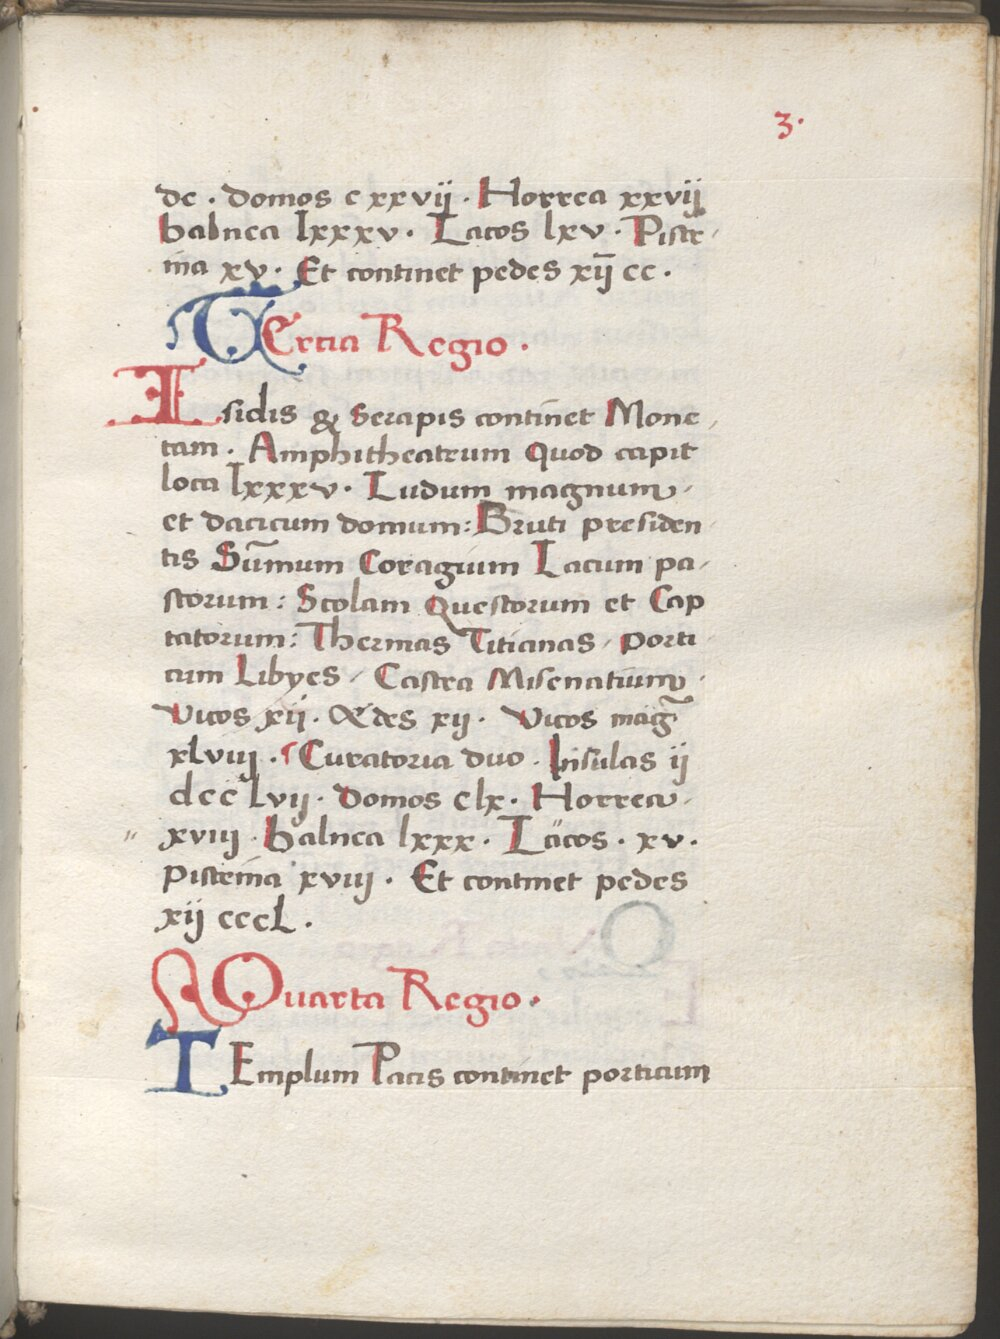 3.
dc . domos c xxvij . Horrea xxvij
balnea lxxxv . Lacos lxv . Piste-
rina xv . Et continet pedes xij cc .
TErtia Regio .
Isidis & Serapis continet Mone-
tam . Amphitheatrum Quod capit
loca lxxxv . Ludum magnum
et dacicum domum : Bruti presiden
tis Sūmum Coragium Lacum pa-
storum : Scolam Questorum et Cap
tatorum : Thermas Titianas / porti
cum Libyes / Castra Misenatium .
Vicos xij . Ædes xij . Vicos mag̃
xlviij . Curatoria duo . Insulas ij
dcc lvij . domos clx . Horrea .
xviij . balnea lxxx . Lacos . xv .
Pisterina xviij . Et continet pedes
xij cccL .
QUarta Regio .
TEmplum Pacis continet porticum